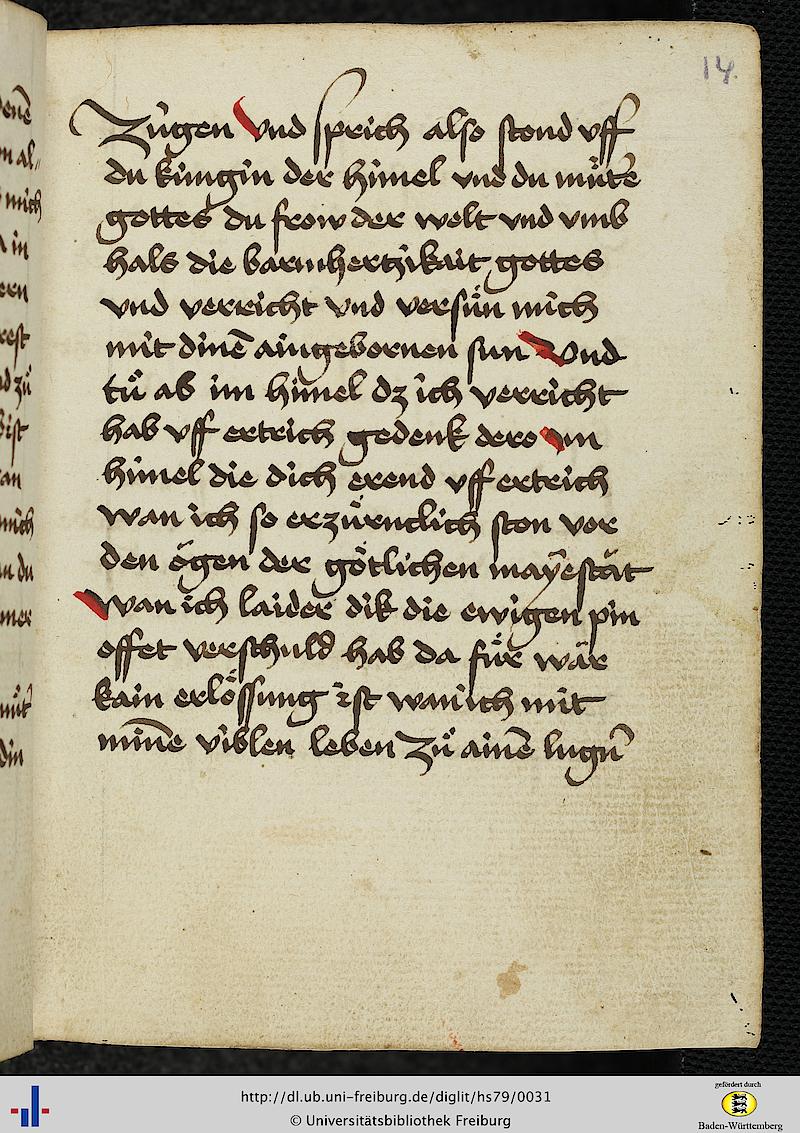 14.
Zügen Vnd sprich also stond vff
du küngin der himel vnd du mütē
gottes du frow der welt vnd vmb
hals die barmhertzikait gottes
vnd verricht vnd versün mich
mit dinē aingebornen sun Vnd
tů ab im himel dz ich verricht
hab vff ertrich gedenk dero im
himel die dich erend vff ertrich
wan ich so erzürnclich ston vor
den ögen der götlichen mayestät
Wan ich laider dik die ewigen pin
offet verschuld hab da für wär
kain erlössung ist wan ich mit
minē v̈blen leben Zů ainē lugn̄
denē
n al„
mich
in
ern
rest
d zů
ist
an
mich
n du
mer
můt
din
http://dl.ub.uni-freiburg.de/diglit/hs79/0031
© Universitätsbibliothek Freiburg
gefördert durch
Baden-Württemberg